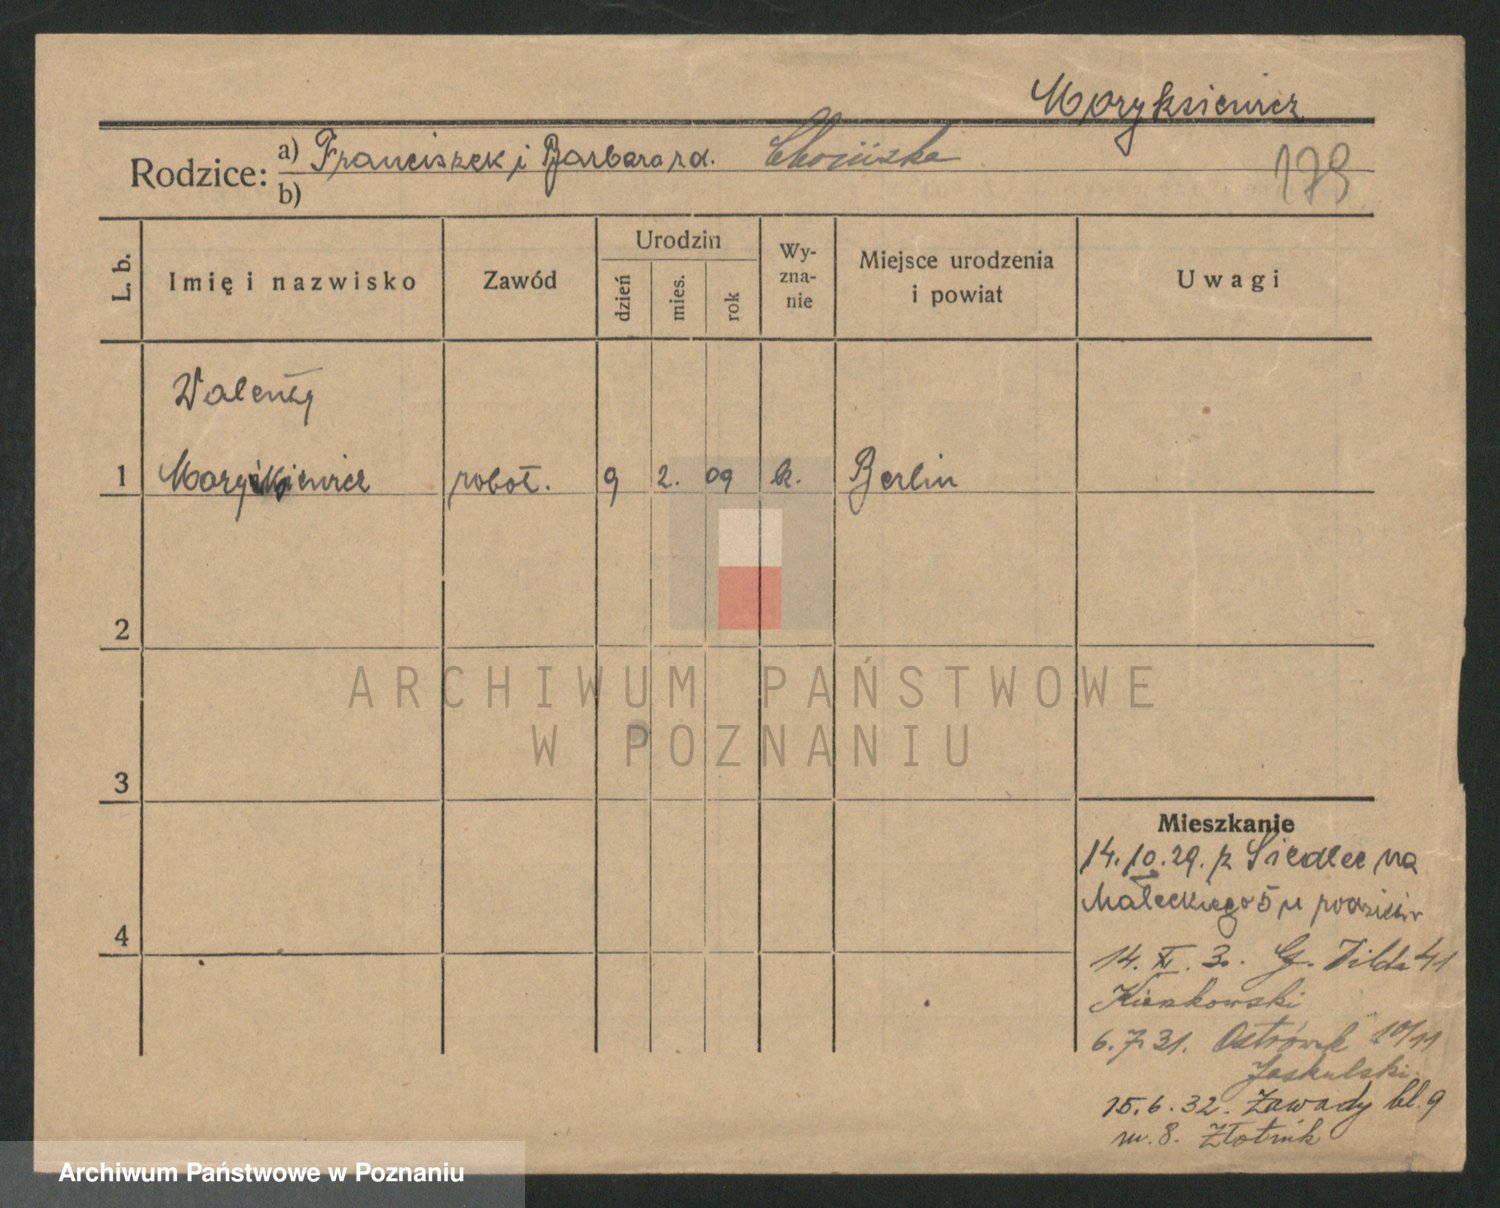 Moryksiewicz
Rodzice: a) Franciszek i Barbara rd.
b)
179
L. b.
Imię i nazwisko
Zawód
Urodzin
dzień
mies.
rok
Wy-
zna-
nie
Miejsce urodzenia
i powiat
Uwagi
Walenty
1 robot. 9 2. 09 k. Berlin
2
3
4
Mieszkanie
14.10.29. z Siedlec na
Małeckiego 5 u rodziców
14. XI. 30. G. Wilda 41
6.7.31. Ostrówek 10/11
Jaskulski
15.6.32. Zawady bl. 9
m. 8. Złotnik
ARCHIWUM PAŃSTWOWE
W POZNANIU
Archiwum Państwowe w Poznaniu